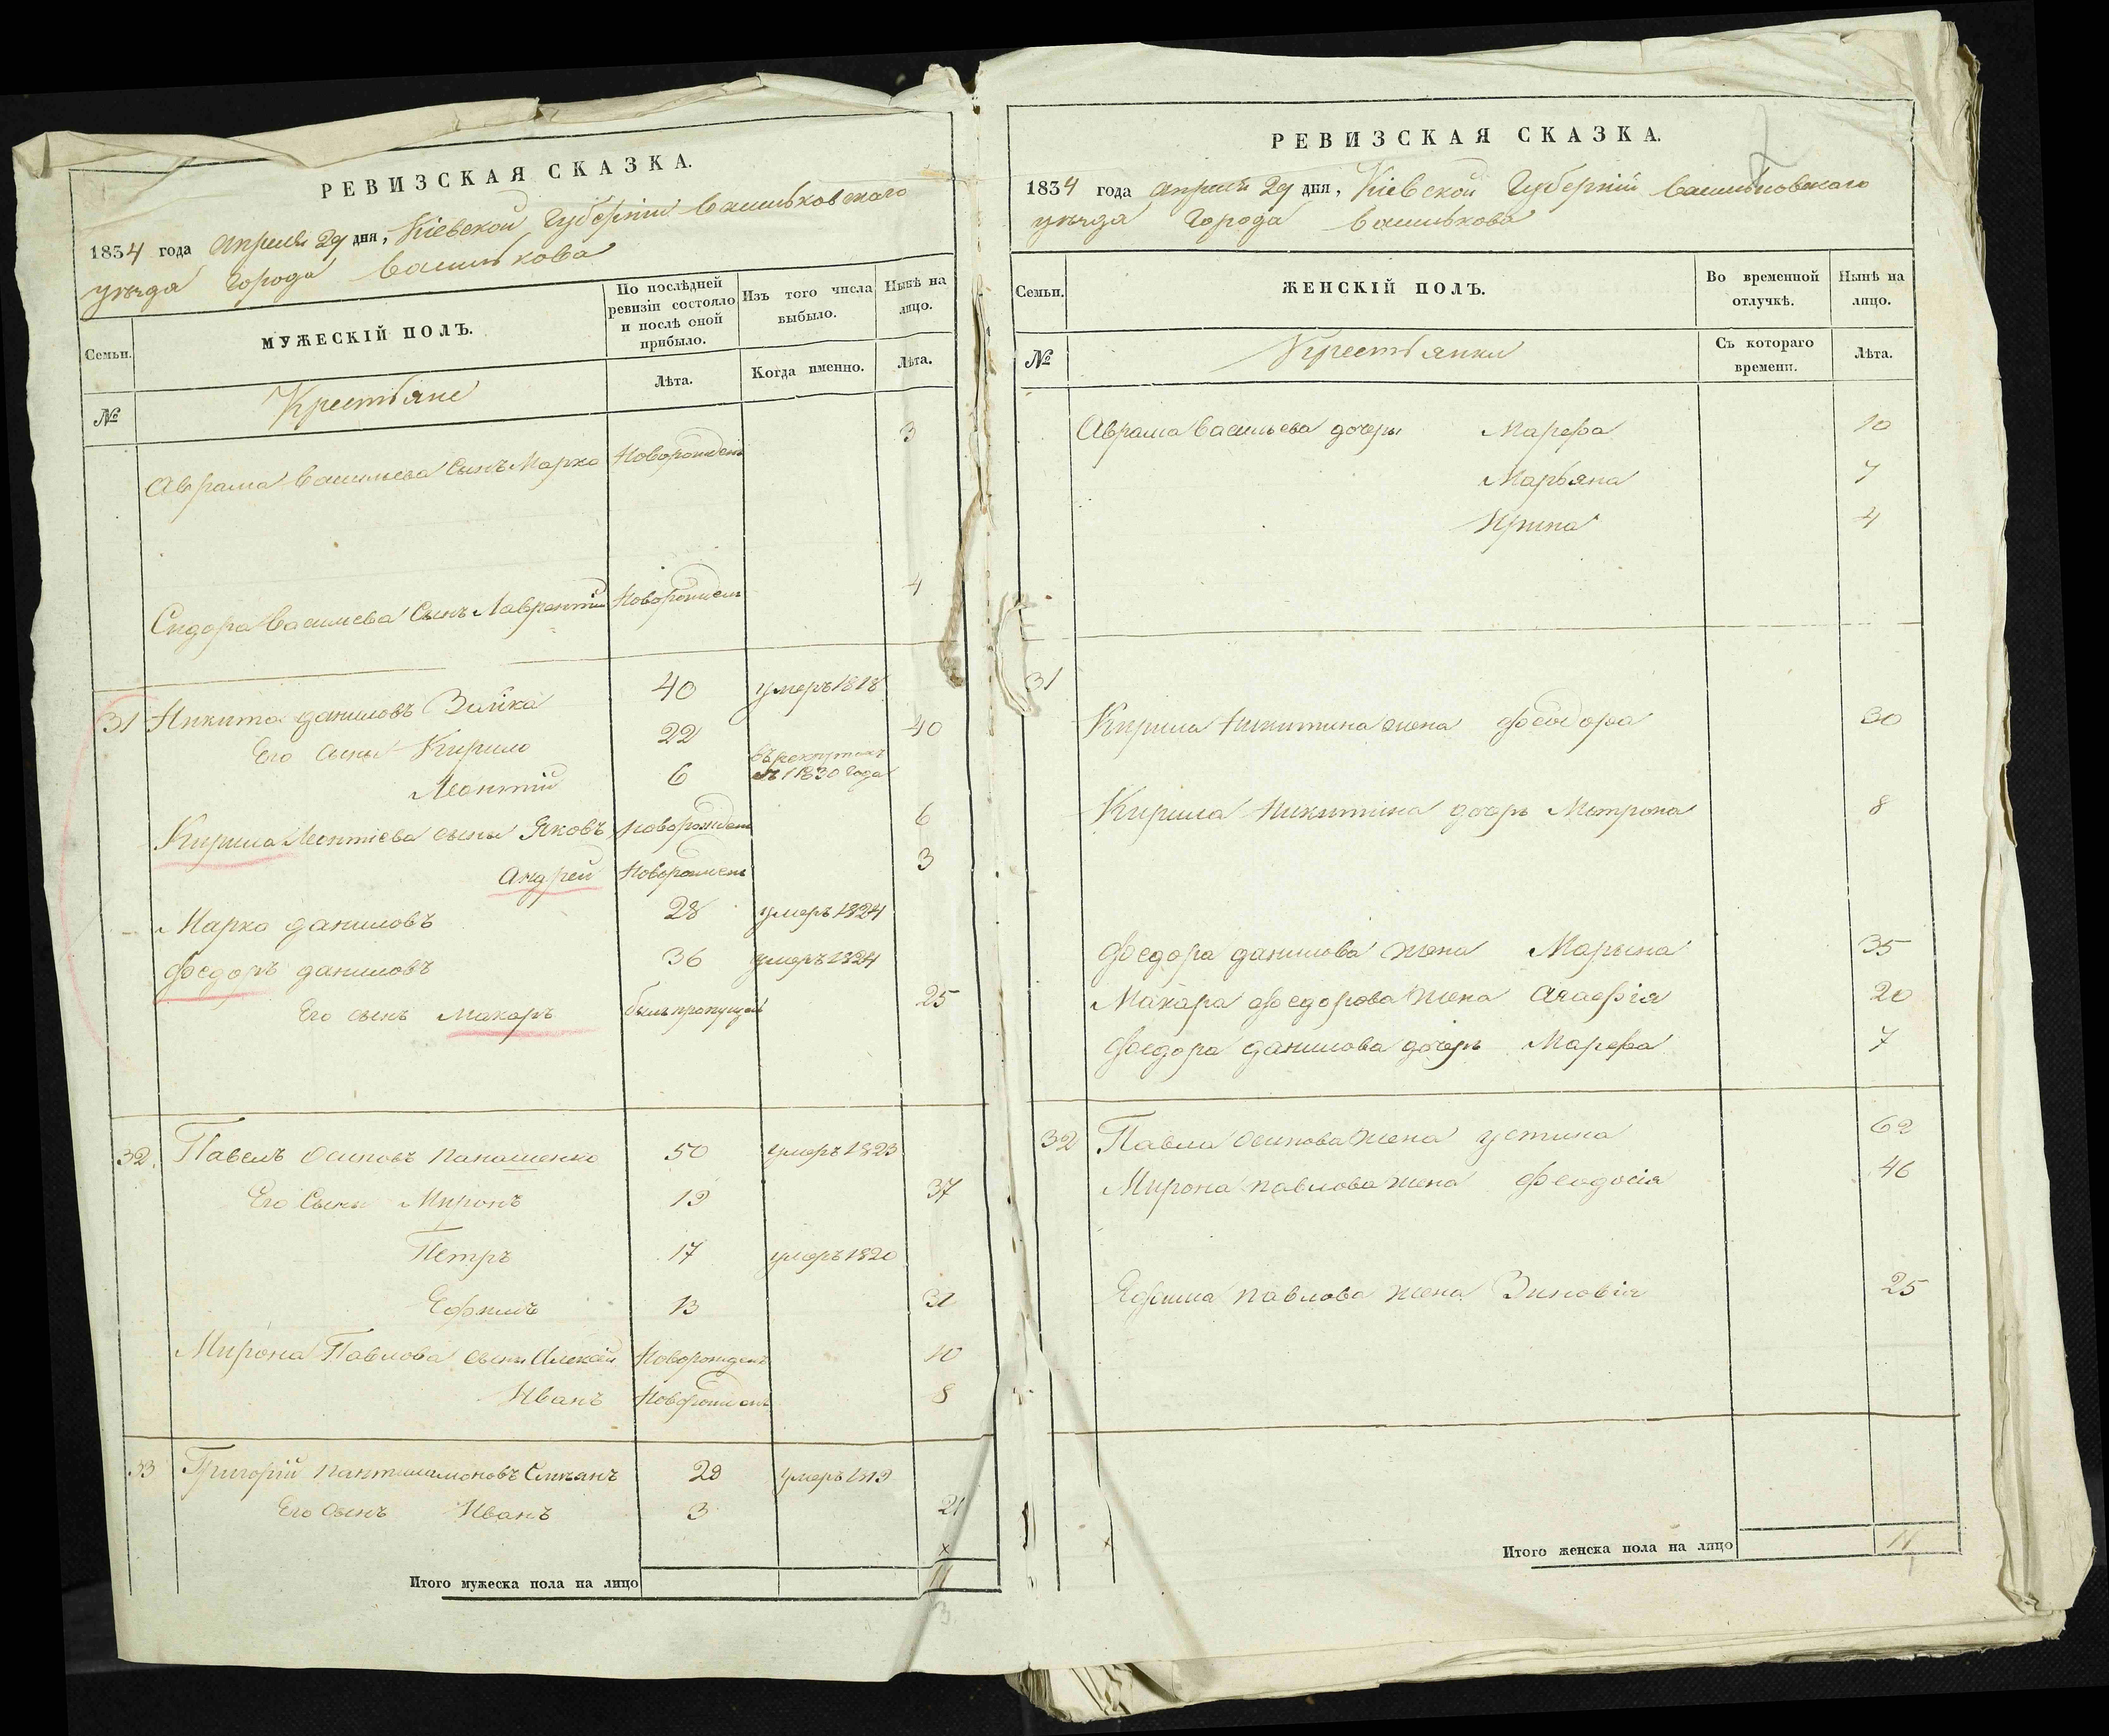 РЕВИЗСКАЯ СКАЗКА.
1834 года Апреля 29 дня, Кіевской Губерніи Васильковского
уѣзда Города Василькова
Семьи.
МУЖЕСКІЙ ПОЛЪ.
По послѣдней ревизіи состояло и послѣ оной прибыло.
Изъ того числа выбыло.
Нынѣ на лицо.
№
Крестьяне
Лѣта.
Когда именно.
Лѣта.
Аврама Васильева Сынъ Марко Новорожденъ 3
Сидора Василиева Сынъ Лаврентій Новорожденъ 4
31 Никита Даниловъ Заика 40 умеръ 1818
Его сыны Кирило 22 40
Леонтій 6 въ рекрутахъ съ 1830 Года
Кирила Леонтіева сыны Яковъ Новорожденъ 6
Андрей Новорожденъ 3
Марко Даниловъ 28 умеръ 1824
Федоръ Даниловъ 36 умеръ 1824
Его сынъ Макаръ былъ пропущенъ 25
32. Павелъ Осиповъ Панашенко 50 умеръ 1823
Его Сыны Миронъ 19 37
Петръ 17 умеръ 1820
Ефимъ 13 31
Мирона Павлова сыны Алексѣй Новорожденъ 10
Иванъ Новорожденъ 8
33 Григорій Пантилимоновъ 29 умеръ 1819
Его Сынъ Иванъ 3 21
Итого мужеска пола на лицо 11
3
РЕВИЗСКАЯ СКАЗКА.
1834 года Апреля 29 дня, Кіевской Губерніи Васильковского
уѣзда Города Василькова
Семьи.
ЖЕНСКІЙ ПОЛЪ.
Во временной отлучкѣ.
Нынѣ на лицо.
№
Крестьянки
Съ котораго времени.
Лѣта.
Аврама Васильева дочеры Марефа 10
Марьяна 7
Ирина 4
31
Кирила Никитина жена Феодора 30
Кирила Никитина дочерь Мотрона 8
Федора Данилова жена Марына 35
Макара Федорова жена Агафія 20
Федора Данилова дочерь Марефа 7
32 Павла Осипова жена Устина 62
Мирона Павлова жена Феодосія 46
Ефима Павлова жена Зиновія 25
Итого женска пола на лицо 11